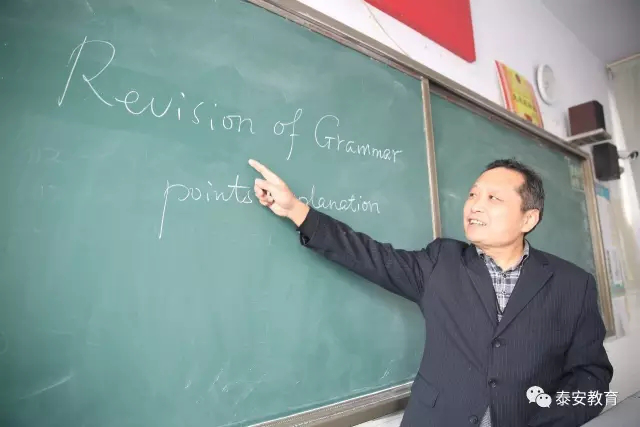 Revision of Grammar
points planation
泰安教育